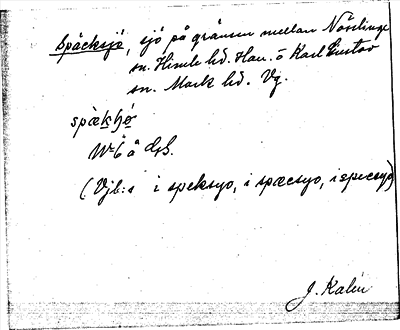 Späcksjö, sjö på gränsen mellan Nösslinge
sn. Himle hd. Hall. o Karl Gustav
sn. Mark hd. Vg.
spækʃø
W=6 å
(Vjb:s i speksyo, i spæcsyo, i specsyo)
J. Kalén